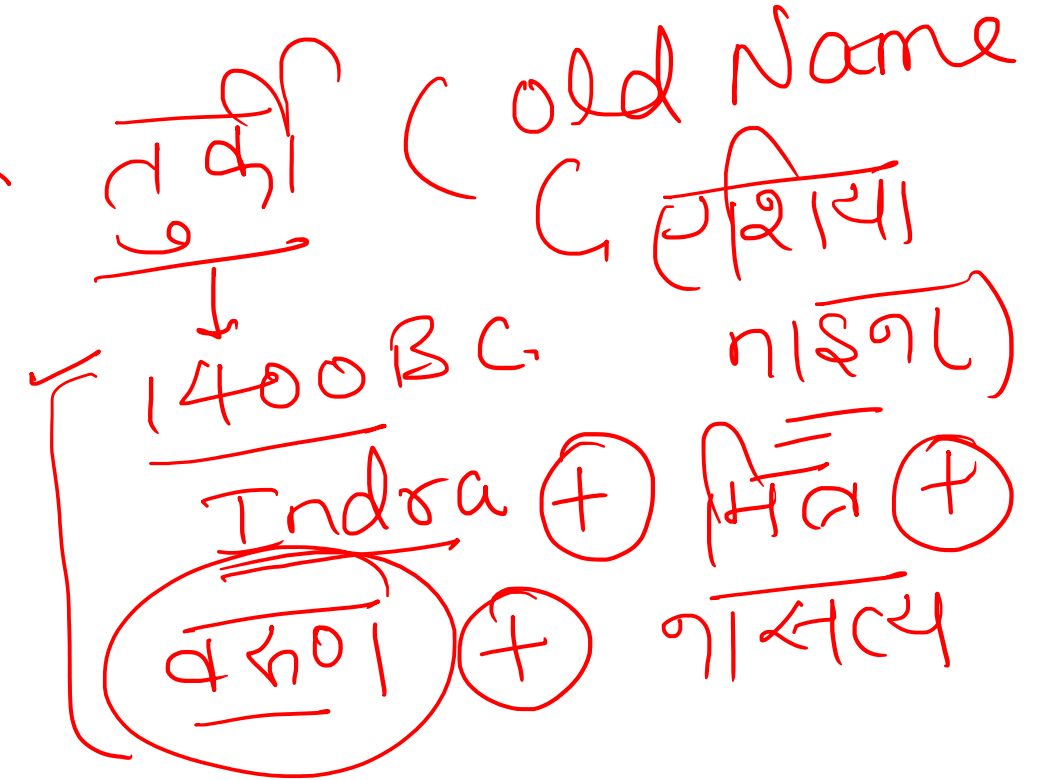 तुर्की ( Old Name
( एशिया
माइनर )
1400 BC
Indra + मित्र +
वरुण + नासत्य